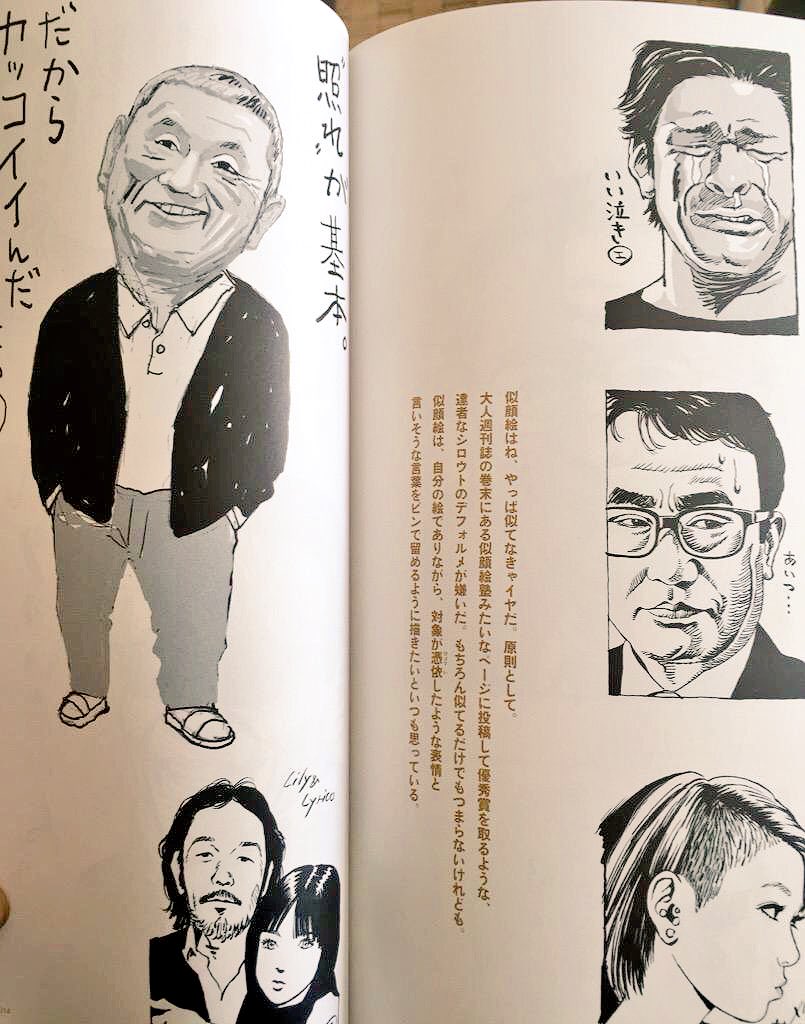 “照れ”が基本。
だから
カッコイイんだ
いい泣き㋓
似顔絵はね、やっぱ似てなきゃイヤだ。原則として。
大人週刊誌の巻末にある似顔絵塾みたいなページに投稿して優秀賞を取るような、
達者なシロウトのデフォルメが嫌いだ。もちろん似てるだけでもつまらないけれども。
似顔絵は、自分の絵でありながら、対象が憑依したような表情と
言いそうな言葉をピンで留めるように描きたいといつも思っている。
あいつ…
Lily&
Lyrico